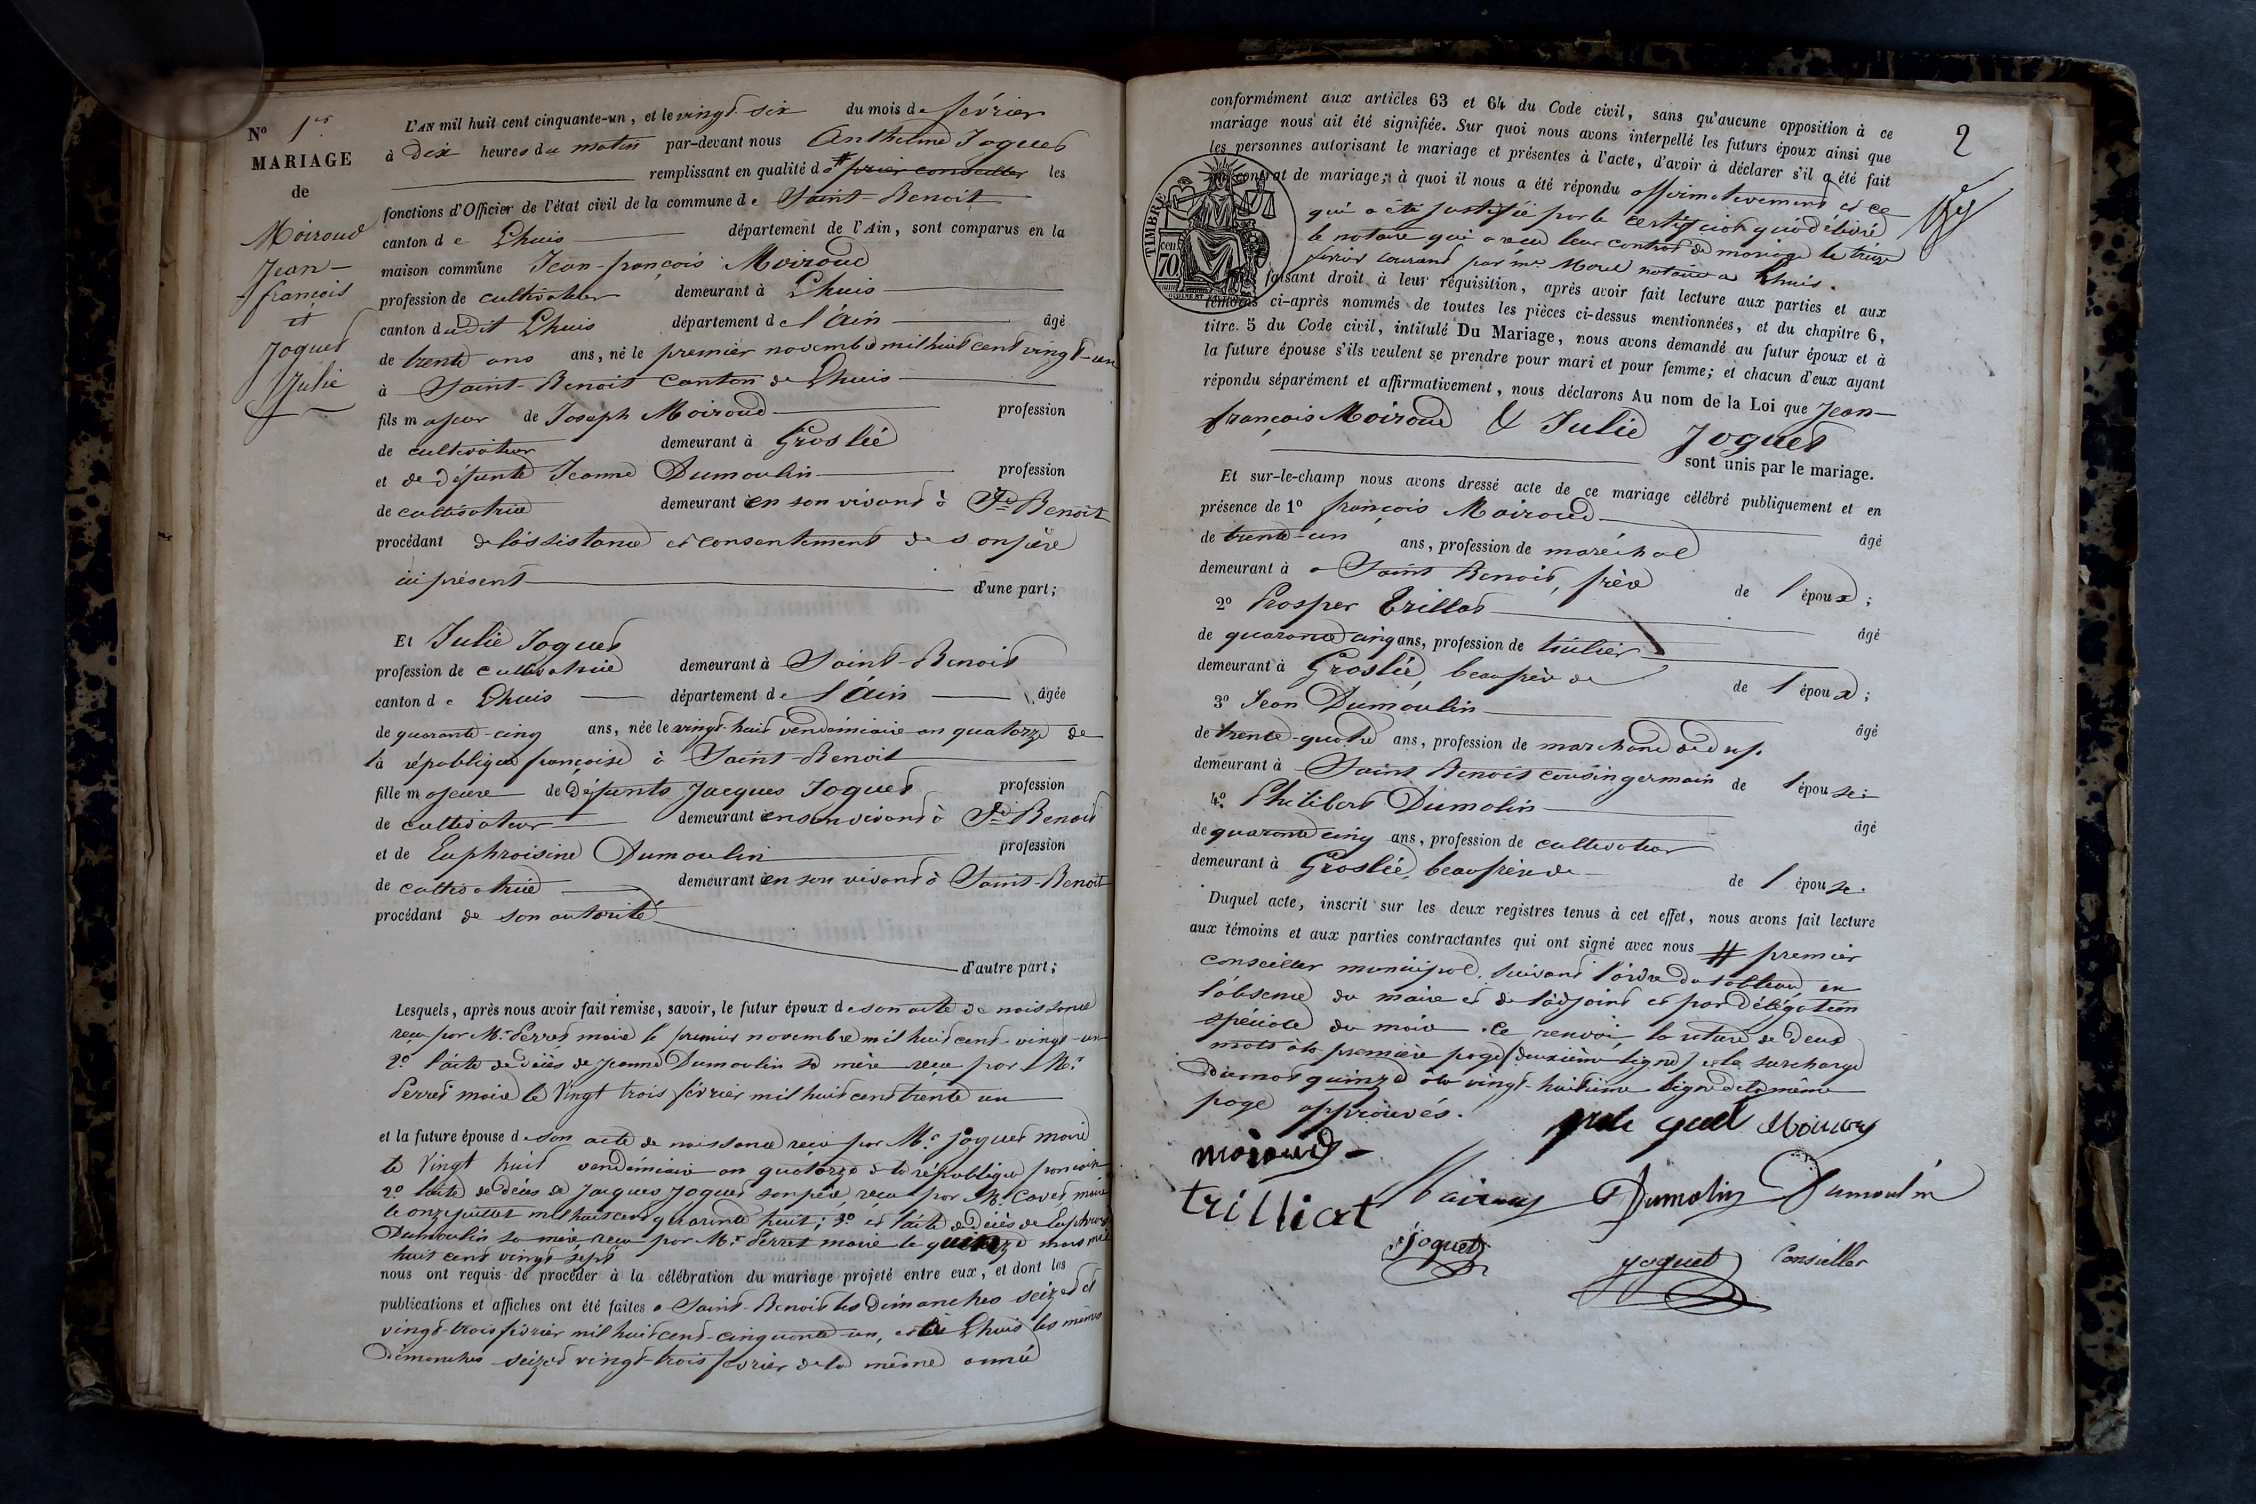 N° 1er
MARIAGE
de
Moiroud
Jean-
françois
et
Joguet
Julie
L'AN mil huit cent cinquante-un, et le vingt-six du mois de février
à dix heures du matin par-devant nous Anthelme Joguet
remplissant en qualité de # premier conseiller les
fonctions d'Officier de l'état civil de la commune de Saint-Benoit
canton de Lhuis département de l'Ain, sont comparus en la
maison commune Jean-françois Moiroud
profession de cultivateur demeurant à Lhuis
canton dudit Lhuis département de l'Ain âgé
de trente ans ans, né le premier novembre mil huit cent vingt-un
à Saint-Benoit canton de Lhuis
fils majeur de Joseph Moiroud profession
de cultivateur demeurant à Groslée
et de défunte Jeanne Dumoulin profession
de cultivatrice demeurant en son vivant à St Benoit
procédant de l'assistance et consentement de son père
ici présent d'une part;
Et Julie Joguet
profession de cultivatrice demeurant à Saint-Benoit
canton de Lhuis département de l'Ain âgée
de quarante-cinq ans, née le vingt-huit vendémiaire an quatorze de
la république françoise à Saint-Benoit
fille majeure de défunts Jacques Joguet profession
de cultivateur demeurant en son vivant à St Benoit
et de Euphroisine Dumoulin profession
de cultivatrice demeurant en son vivant à Saint-Benoit
procédant de son autorité
d'autre part;
Lesquels, après nous avoir fait remise, savoir, le futur époux de son acte de naissance
reçu par Mr Perret maire le premier novembre mil huit cent vingt-un
2° l'acte de décès de Jeanne Dumoulin sa mère reçu par Mr
Perret maire le vingt trois février mil huit cent trente un
et la future épouse de son acte de naissance reçu par Mr Joguet maire
le vingt huit vendémiaire an quatorze de la république françoise
2° l'acte de décès de Jacques Joguet son père, reçu par Mr Cavet maire
le onze juillet mil huit cent quarante huit; 3° et l'acte de décès de Euphrosine
Dumoulin sa mère reçu par Mr Perret maire le quinze mars mil
huit cent vingt-sept
nous ont requis de procéder à la célébration du mariage projeté entre eux, et dont les
publications et affiches ont été faites à Saint-Benoit les dimanches seize et
vingt-trois février mil huit cent-cinquante-un, et à Lhuis les mêmes
dimanches seize et vingt-trois février de la même année
2
conformément aux articles 63 et 64 du Code civil, sans qu'aucune opposition à ce
mariage nous ait été signifiée. Sur quoi nous avons interpellé les futurs époux ainsi que
les personnes autorisant le mariage et présentes à l'acte, d'avoir à déclarer s'il a été fait
un contrat de mariage; à quoi il nous a été répondu affirmativement et ce
qui a été justifié par le certificat qu'a délivré
le notaire qui a reçu leur contrat de mariage le treize
février courant par me Morel notaire à Lhuis.
TIMBRE
70
faisant droit à leur réquisition, après avoir fait lecture aux parties et aux
témoins ci-après nommés de toutes les pièces ci-dessus mentionnées, et du chapitre 6,
titre 5 du Code civil, intitulé Du Mariage, nous avons demandé au futur époux et à
la future épouse s'ils veulent se prendre pour mari et pour femme; et chacun d'eux ayant
répondu séparément et affirmativement, nous déclarons Au nom de la Loi que Jean-
françois Moiroud & Julie Joguet
sont unis par le mariage.
Et sur-le-champ nous avons dressé acte de ce mariage célébré publiquement et en
présence de 1° françois Moiroud âgé
de trente-un ans, profession de maréchal
demeurant à à Saint Benoit, frère de l'époux;
2° Prosper Trillat âgé
de quarante cinq ans, profession de tuilier
demeurant à Groslée, beaufrère de de l'époux;
3° Jean Dumoulin âgé
de trente-quatre ans, profession de marchand
demeurant à Saint Benoit cousin germain de l'épouse;
4° Philibert Dumolin âgé
de quarante cinq ans, profession de cultivateur
demeurant à Groslée, beaufrère de de l'épouse.
Duquel acte, inscrit sur les deux registres tenus à cet effet, nous avons fait lecture
aux témoins et aux parties contractantes qui ont signé avec nous # premier
conseiller municipal suivant l'ordre du tableau en
l'absence du maire et de l'adjoint et par délégation
spéciale du maire. Ce renvoi, la rature de deux
mots à la première page (deuxième ligne) et la surcharge
du mot quinze à la vingt-huitième ligne de la même
page approuvés.
moiroud
Moiroud
trilliat
Dumolin
Dumoulin
Joguet
Joguet
Conseiller